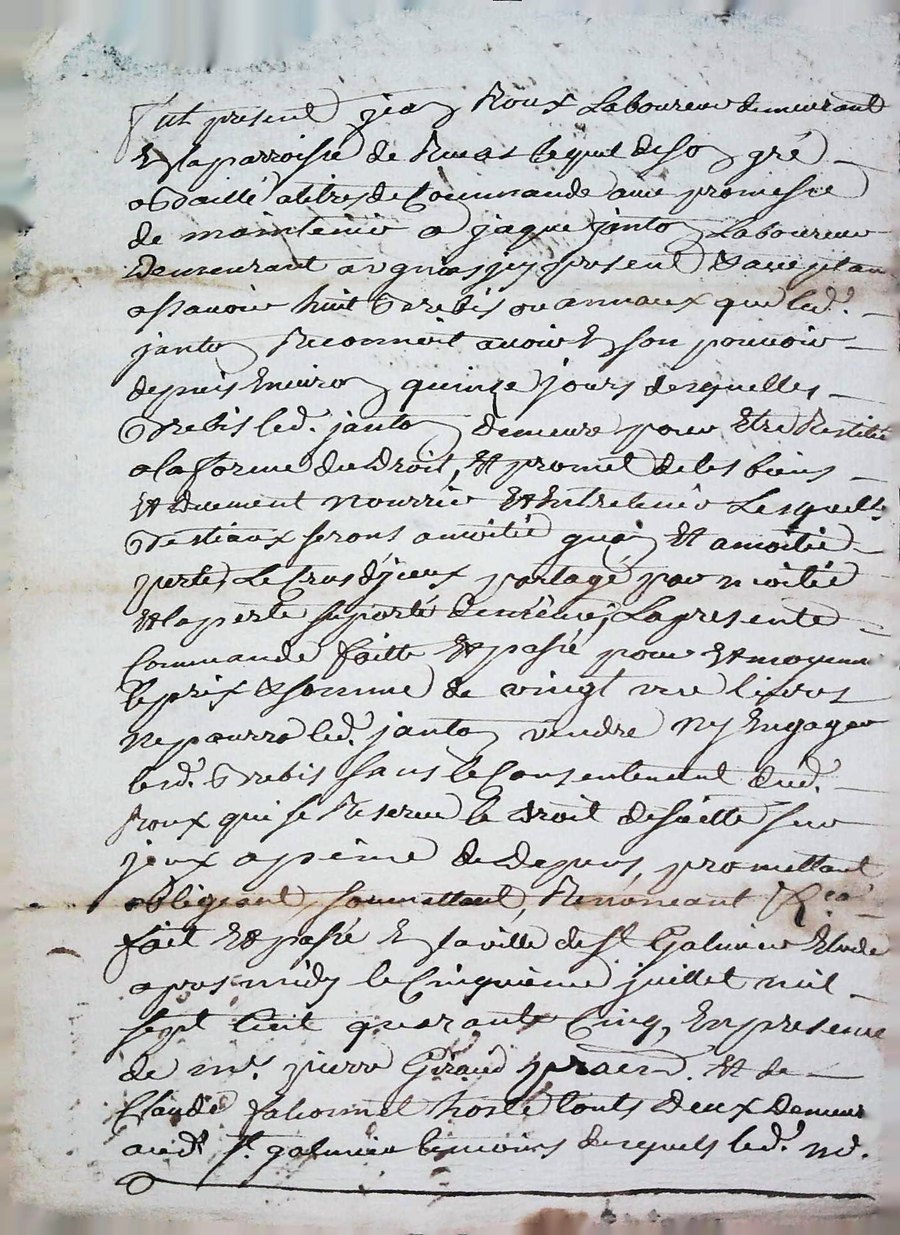 Fut present jean Roux Laboureur demeurant
En laparroisse de Rivas lequel deson gré
abaillé atitre de Commande avec promesse
de maintenir a jaque janton Laboureur
Demeurant present Et
assavoir huit Brebis ou annaux que led.
janton Reconnoit avoir En son pouvoir
depuis Environ quinze jours desquelles
Brebis led. janton Demeure pour Etre Restitué
alaforme du Droit, Et promet de les bien
Et duement nourrir Et Entretenir Lesquels
Bestiaux seront amoitié guain Et amoitié
perte, Le Crus d'jceux partagé par moitié
Et laperte suporté de mème, Lapresente
Commande faitte Et passé pour Et moyenn
le prix & somme de vingt une livres
Ne pourra led. janton vendre Ny Engager
lesd. Brebis sans le Consentement dud.
Roux qui se Reserve le droit desuitte sur
jceux apeine de Depens, promettant
obligeant, soumettant, Renonceant &ca
fait Et passé En la ville de St Galmier Etude
apres midy le Cinquieme juillet mil
sept Cent quarante Cinq, En presence
de mr. pierre Giraud praen. Et de
Claude hoste touts deux Demeur
aud. St. galmier temoins desquels led. md.